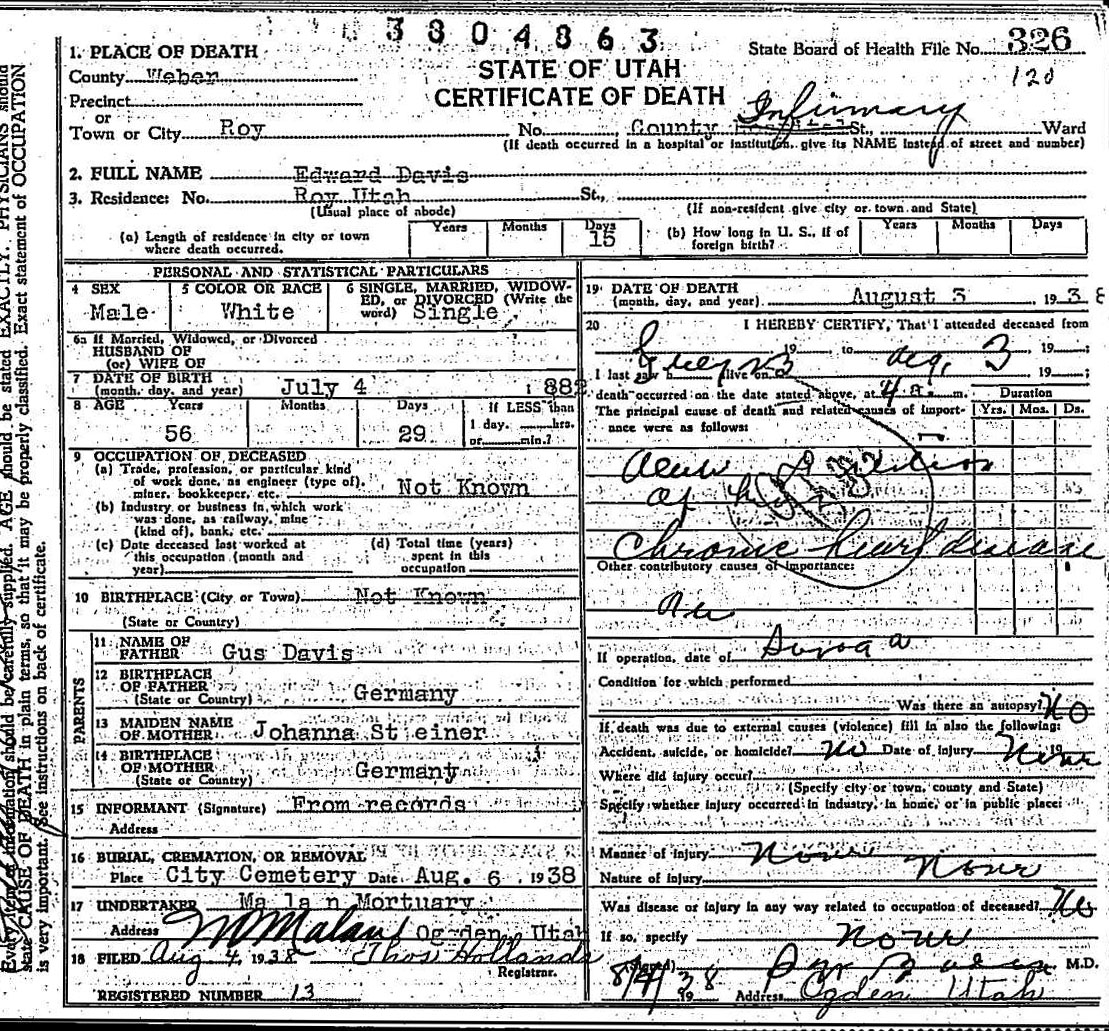 3804863
State Board of Health File No. 326
120
STATE OF UTAH
CERTIFICATE OF DEATH
1. PLACE OF DEATH
County Weber
Precinct
or
Town or City Roy No. County Hospital Infirmary St., Ward
(If death occurred in a hospital or institution, give its NAME instead of street and number)
2. FULL NAME Edward Davis
3. Residence: No. Roy Utah St.,
(Usual place of abode) (If non-resident give city or town and State)
(a) Length of residence in city or town where death occurred. Years Months Days 15
(b) How long in U. S., if of foreign birth? Years Months Days
PERSONAL AND STATISTICAL PARTICULARS
4 SEX Male
5 COLOR OR RACE White
6 SINGLE, MARRIED, WIDOWED, or DIVORCED (Write the word) Single
6a If Married, Widowed, or Divorced
HUSBAND OF
(or) WIFE OF
7 DATE OF BIRTH
(month, day, and year) July 4 1882
8 AGE Years 56 Months Days 29 If LESS than 1 day, hrs. or min.?
9 OCCUPATION OF DECEASED
(a) Trade, profession, or particular kind
of work done, as engineer (type of),
miner, bookkeeper, etc. Not Known
(b) Industry or business in which work
was done, as railway, mine
(kind of), bank, etc.
(c) Date deceased last worked at
this occupation (month and
year)
(d) Total time (years)
spent in this
occupation
10 BIRTHPLACE (City or Town) Not Known
(State or Country)
PARENTS
11 NAME OF
FATHER Gus Davis
12 BIRTHPLACE
OF FATHER Germany
(State or Country)
13 MAIDEN NAME
OF MOTHER Johanna Steiner
14 BIRTHPLACE
OF MOTHER Germany
(State or Country)
15 INFORMANT (Signature) From records
Address
16 BURIAL, CREMATION, OR REMOVAL
Place City Cemetery Date Aug. 6, 1938
17 UNDERTAKER Malan Mortuary
Address Ogden, Utah
18 FILED Aug 4, 1938 Thos Hollands
Registrar.
REGISTERED NUMBER 13
19 DATE OF DEATH
(month, day, and year) August 3, 1938
20 I HEREBY CERTIFY, That I attended deceased from
19 to Aug. 3 19 ;
I last saw h alive on 19 ;
death occurred on the date stated above, at 4 a. m.
Duration
The principal cause of death and related causes of importance were as follows: Yrs. Mos. Ds.
Chronic heart disease
Other contributory causes of importance:
If operation, date of
Condition for which performed
Was there an autopsy? No
If death was due to external causes (violence) fill in also the following:
Accident, suicide, or homicide? no Date of injury None 19
Where did injury occur?
(Specify city or town, county and State)
Specify whether injury occurred in industry, in home, or in public place:
Manner of injury None
Nature of injury None
Was disease or injury in any way related to occupation of deceased? No
If so, specify none
(Signed) M.D.
8/4/38 19 Address Ogden Utah